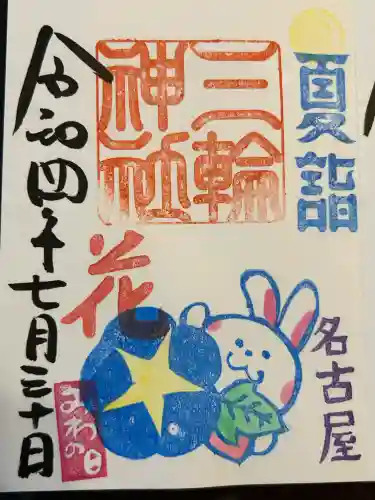 夏詣
三輪
神社
花
名古屋
令和四年七月三十日
まわの日